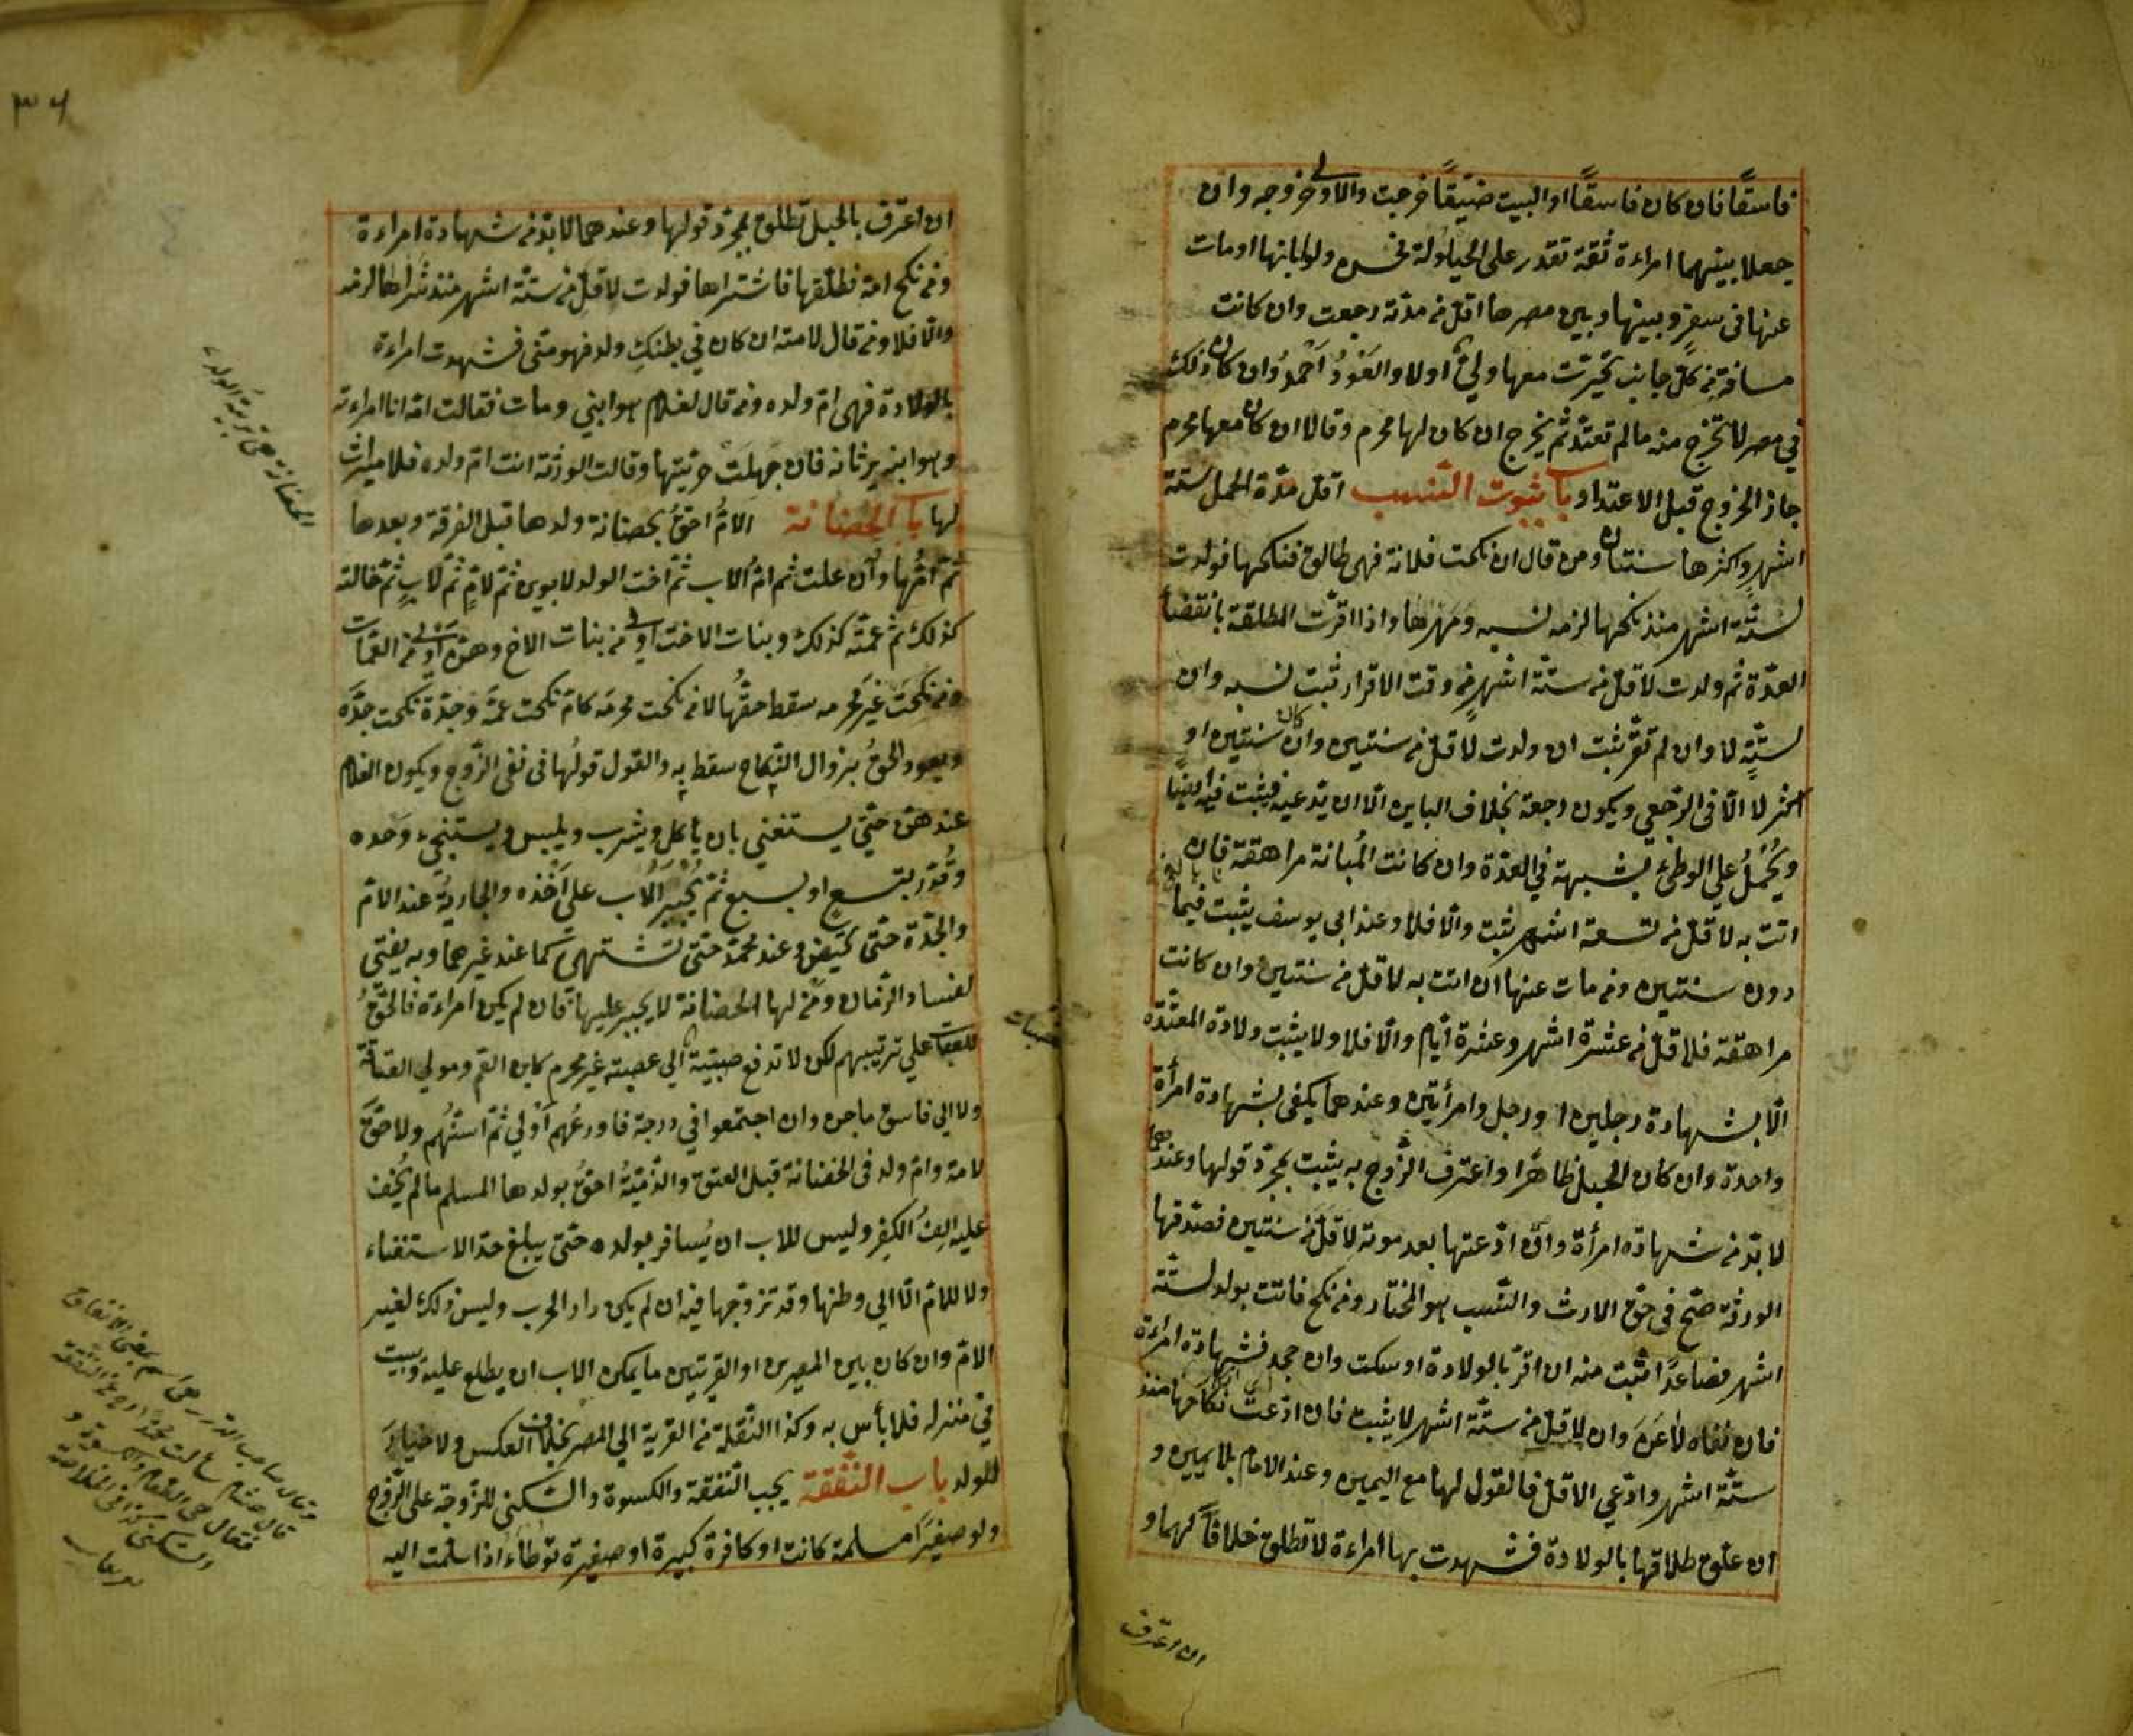 فاسقًا فان كان فاسقًا او البيت ضيّقًا خرجت والاولى خروجه وان
جعلا بينهما امراءة ثقة تقدر على الحيلولة فحسن ولو ابانها او مات
عنها فى سفر وبينها وبين مصرها اقل من مدته رجعت وان كانت
مسافته من كل جانب تخيّرت معها ولىّ اولا والعَوْدُ اَحْمَدُ وان كان ذلك
في مصر لا تخرج منه مالم تعتدّ ثم تخرج ان كان لها محرم وقالا ان كان معها محرم
جاز الخروج قبل الاعتداد باب ثبوت النسب اقل مدّة الحمل ستة
اشهر واكثرها سنتان ومن قال ان نكحت فلانة فهى طالق فنكحها فولدت
لستّة اشهر منذ نكحها لزمه نسبه ومهرها واذا اقرّت المطلقة بانقضاء
العدّة ثم ولدت لاقل من ستّة اشهر من وقت الاقرار ثبت نسبه وان
لستّةٍ لا وان لم تقرّ يثبت ان ولدت لاقل من سنتين وان كان سنتين او
اكثر لا الّا فى الرّجعي ويكون رجعة بخلاف الباين الّا ان يدّعيه فيثبت فيه ايضًا
ويُحْمَلُ علي الوطئ بشبهة في العدّة وان كانت المُبانة مراهقة فان
اتت به لاقل من تسعة اشهر ثبت والّا فلا وعند ابى يوسف يثبت فيما
دون سنتين ومن مات عنها ان اتت به لاقل من سنتين وان كانت
مراهقة فلاقل من عشرة اشهر وعشرة ايّام والّا فلا ولا يثبت ولادة المعتدّة
الّا بشهادة رجلين او رجل وامرأتين وعندهما يكفى بشهادة امرأة
واحدة وان كان الحبل ظاهرًا واعترف الزّوج به يثبت بمجرّد قولها وعندهما
لا بدّ من شهادة امرأة وان ادّعتها بعد موته لاقل من سنتين فصدّقها
الورثة صحّ فى حقّ الارث والنّسب هو المختار ومن نكح فاتت بولد لستّة
اشهر فصاعدًا ثبت منه ان اقرّ بالولادة او سكت وان جحد فشهادة امراءة
فان نفاه لاعَنَ وان لاقل من ستّة اشهر لا يثبت فان ادّعت نكاحها منذ
ستّة اشهر وادّعى الاقل فالقول لها مع اليمين وعند الامام بلا يمين و
ان علّق طلاقها بالولادة فشهدت بها امراءة لا تطلق خلافًا لهما و
ان اعترف
٣٦
ان اعترف بالحبل تطلق بمجرّد قولها وعندهما لا بدّ من شهادة امراءة
ومن نكح امة فطلّقها فاشتراها فولدت لاقل من ستّة اشهر منذ شراها لزمه
والّا فلا ومن قال لامته ان كان في بطنكِ ولد فهو منّى فشهدت امراءة
بالولادة فهى امّ ولده ومن قال لغلام هو ابني ومات فقالت امّه انا امراءته
وهو ابنه يرثانه فان جَهِلَتْ حريّتها وقالت الورثة انت امّ ولده فلا ميراث
لها باب الحضانة الامّ احقّ بحضانة ولدها قبل الفرقة وبعدها
ثمّ امّها وان علت ثم امّ الاب ثمّ اخت الولد لابوين ثمّ لامّ ثمّ لابٍ ثمّ خالته
كذلك ثمّ عمّته كذلك وبنات الاخت اولى من بنات الاخ وهنّ اولى من العمّات
ومن نكحت غير محرمه سقط حقّها لا من نكحت محرمه كامّ نكحت عمّه وجدّة نكحت جدّه
ويعود الحقّ بزوال النّكاح سقط به والقول قولُها فى نفى الزّوج ويكون الغلام
عندهنّ حتّى يستغني بان ياكل ويشرب ويلبس ويستنجىء وحده
وقُدِّرَ بتسعٍ او بسبع ثمّ يُجْبَرُ الاب على اخذه والجاريةُ عند الامّ
والجدّة حتّى تحيض وعند محمّد حتّى تشتهى كما عند غيرهما وبه يفتى
لفساد الزّمان ومن لها الحضانة لا يجبر عليها فان لم يكن امراءة فالحقّ
للعصبات علي ترتيبهم لكن لا تدفع صبيّة الي عصبته غير محرم كابن العمّ ومولي العتاقة
ولا الي فاسق ماجن وان اجتمعوا في درجة فاورعُهم اولي ثمّ اسنّهم ولا حقّ
لامة وامّ ولد فى الحضانة قبل العتق والذّميّة احقّ بولدها المسلم مالم يُخَف
عليه الِف الكفر وليس للاب ان يُسافر بولده حتّى يبلغ حدّ الاستغناء
ولا للامّ الّا الي وطنها وقد تزوّجها فيه ان لم يكن دار الحرب وليس ذلك لغير
الامّ وان كان بين المصرين او القريتين ما يمكن الاب ان يطلع عليه ويبيت
في منزله فلا بأس به وكذا النّقلة من القرية الي المصر بخلاف العكس ولا خيار
للولد باب النّفقة يجب النّفقة والكسوة والسّكنى للزّوجة على الزّوج
ولو صغيرًا مسلمة كانت او كافرة كبيرة او صغيرة توطاء اذا سلّمت اليه
الحضانة هى تربية الولد